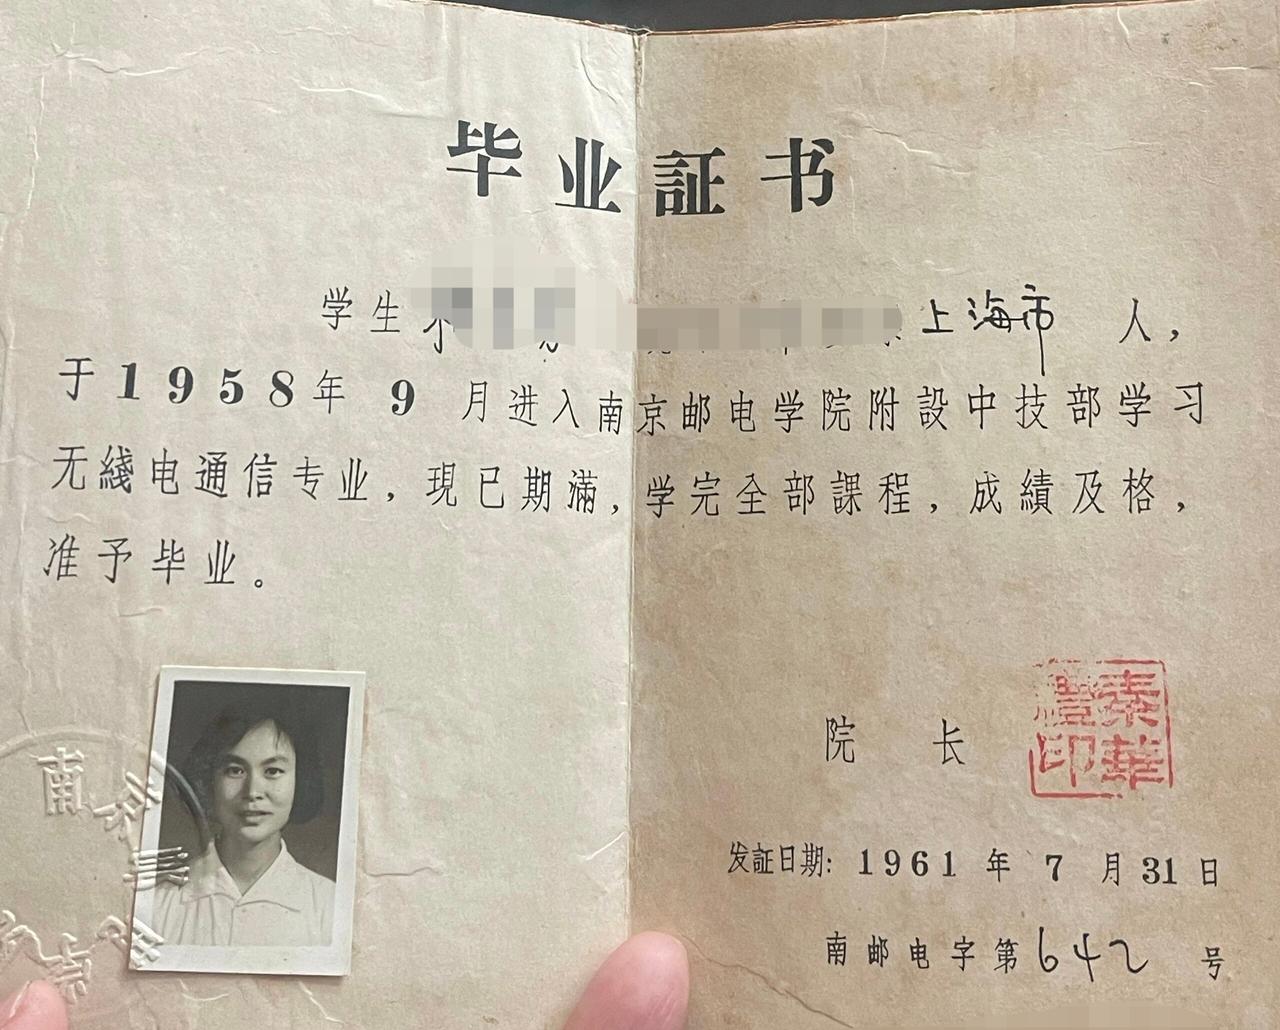 毕业証书
学生 上海市 人，
于1958年 9 月进入南京邮电学院附設中技部学习
无綫电通信专业，現已期滿，学完全部課程，成績及格，
准予毕业。
院 长
秦華 印
发証日期：1961 年 7 月 31 日
南邮电字第642号
南
京